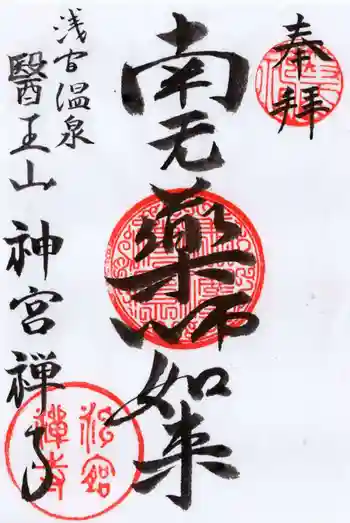 奉拝
南无藥師如来
浅間温泉
醫王山 神宮禅寺
神宮禅寺